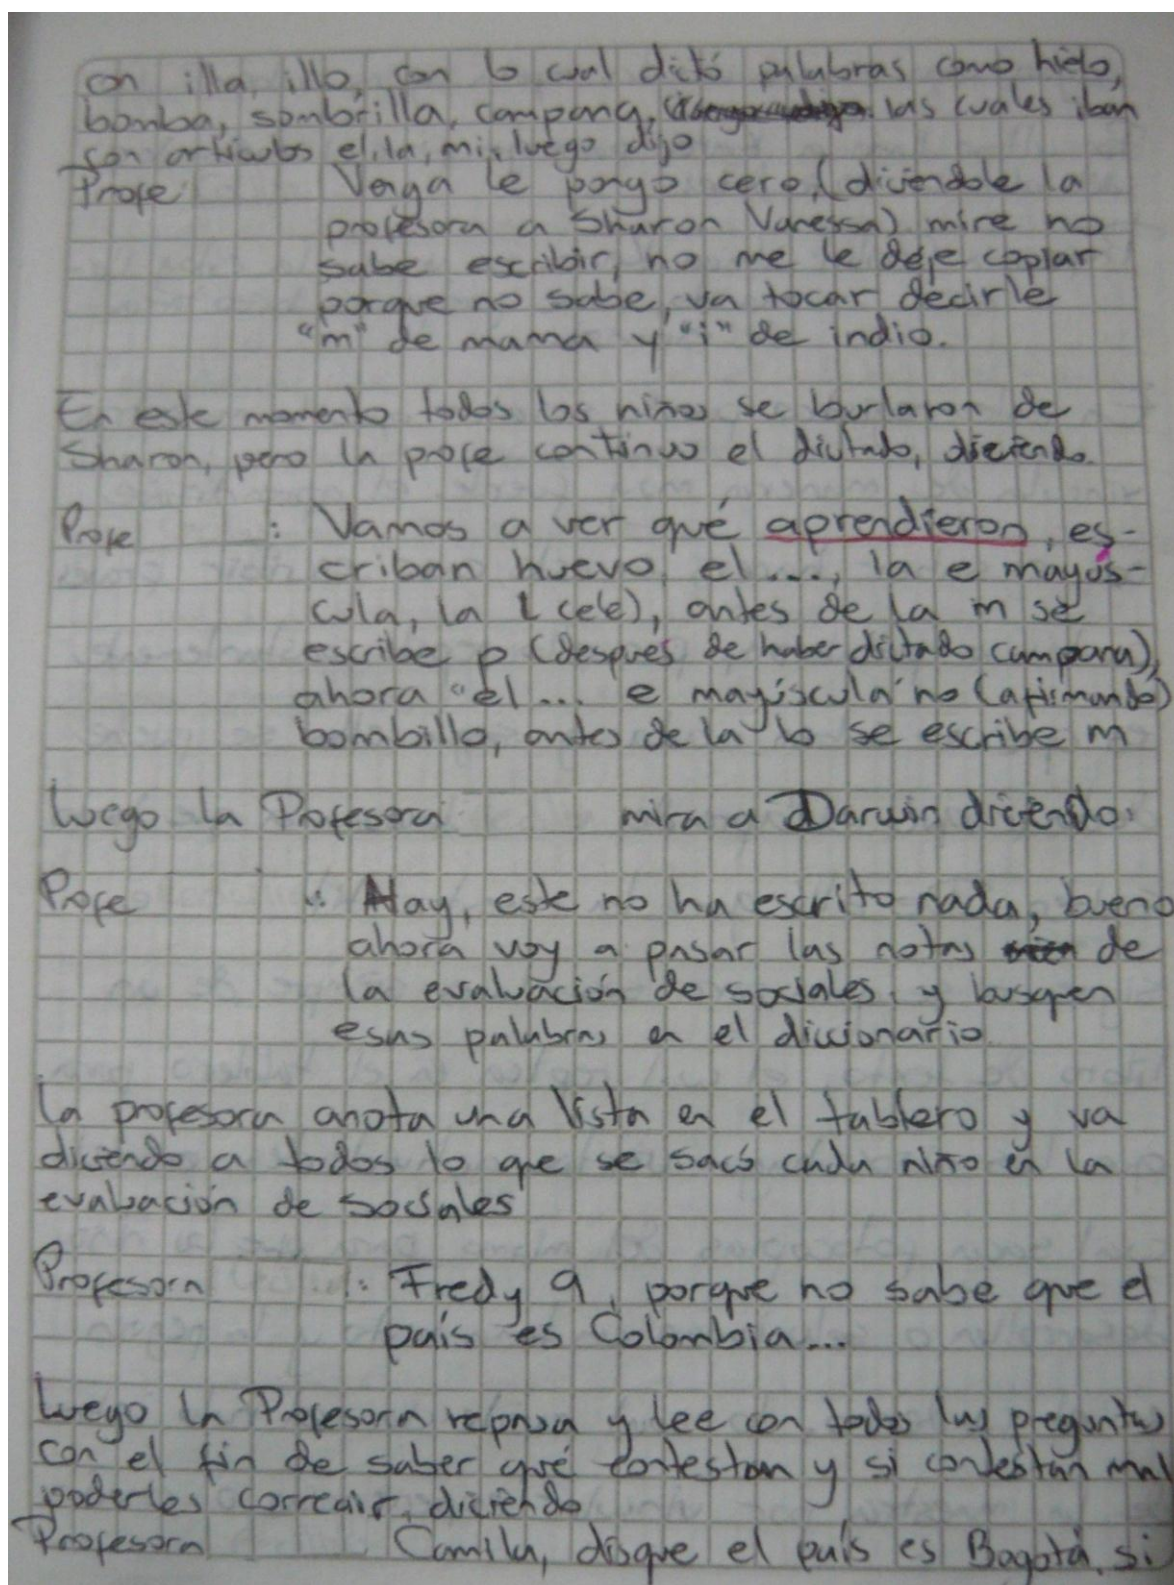 con illa, illo, con lo cual dictó palabras como hielo,
bomba, sombrilla, campana, las cuales iban
con artículos el, la, mi, luego dijo
Profe: Venga le pongo cero, (diciendole la
profesora a Sharon Vanessa) mire no
sabe escribir, no me le deje copiar
porque no sabe, va tocar decirle
"m" de mama y "i" de indio.
En este momento todos los niños se burlaron de
Sharon, pero la profe continuo el dictado, diciendo.
Profe : Vamos a ver qué aprendieron, es-
criban huevo, el ..., la e mayús-
cula, la l (ele), antes de la m se
escribe p (después de haber dictado campana),
ahora "el ... e mayúscula" no (afirmando)
bombillo, antes de la b se escribe m
Luego la Profesora mira a Darwin diciendo:
Profe : Hay, este no ha escrito nada, bueno
ahora voy a pasar las notas de
la evaluación de sociales, y busquen
esas palabras en el diccionario.
La profesora anota una lista en el tablero y va
diciendo a todos lo que se sacó cada niño en la
evaluación de sociales
Profesora : Fredy 9, porque no sabe que el
país es Colombia...
Luego la Profesora repasa y lee con todos las preguntas
con el fin de saber qué contestan y si contestan mal
poderles corregir, diciendo
Profesora Camila, disque el país es Bogotá, si